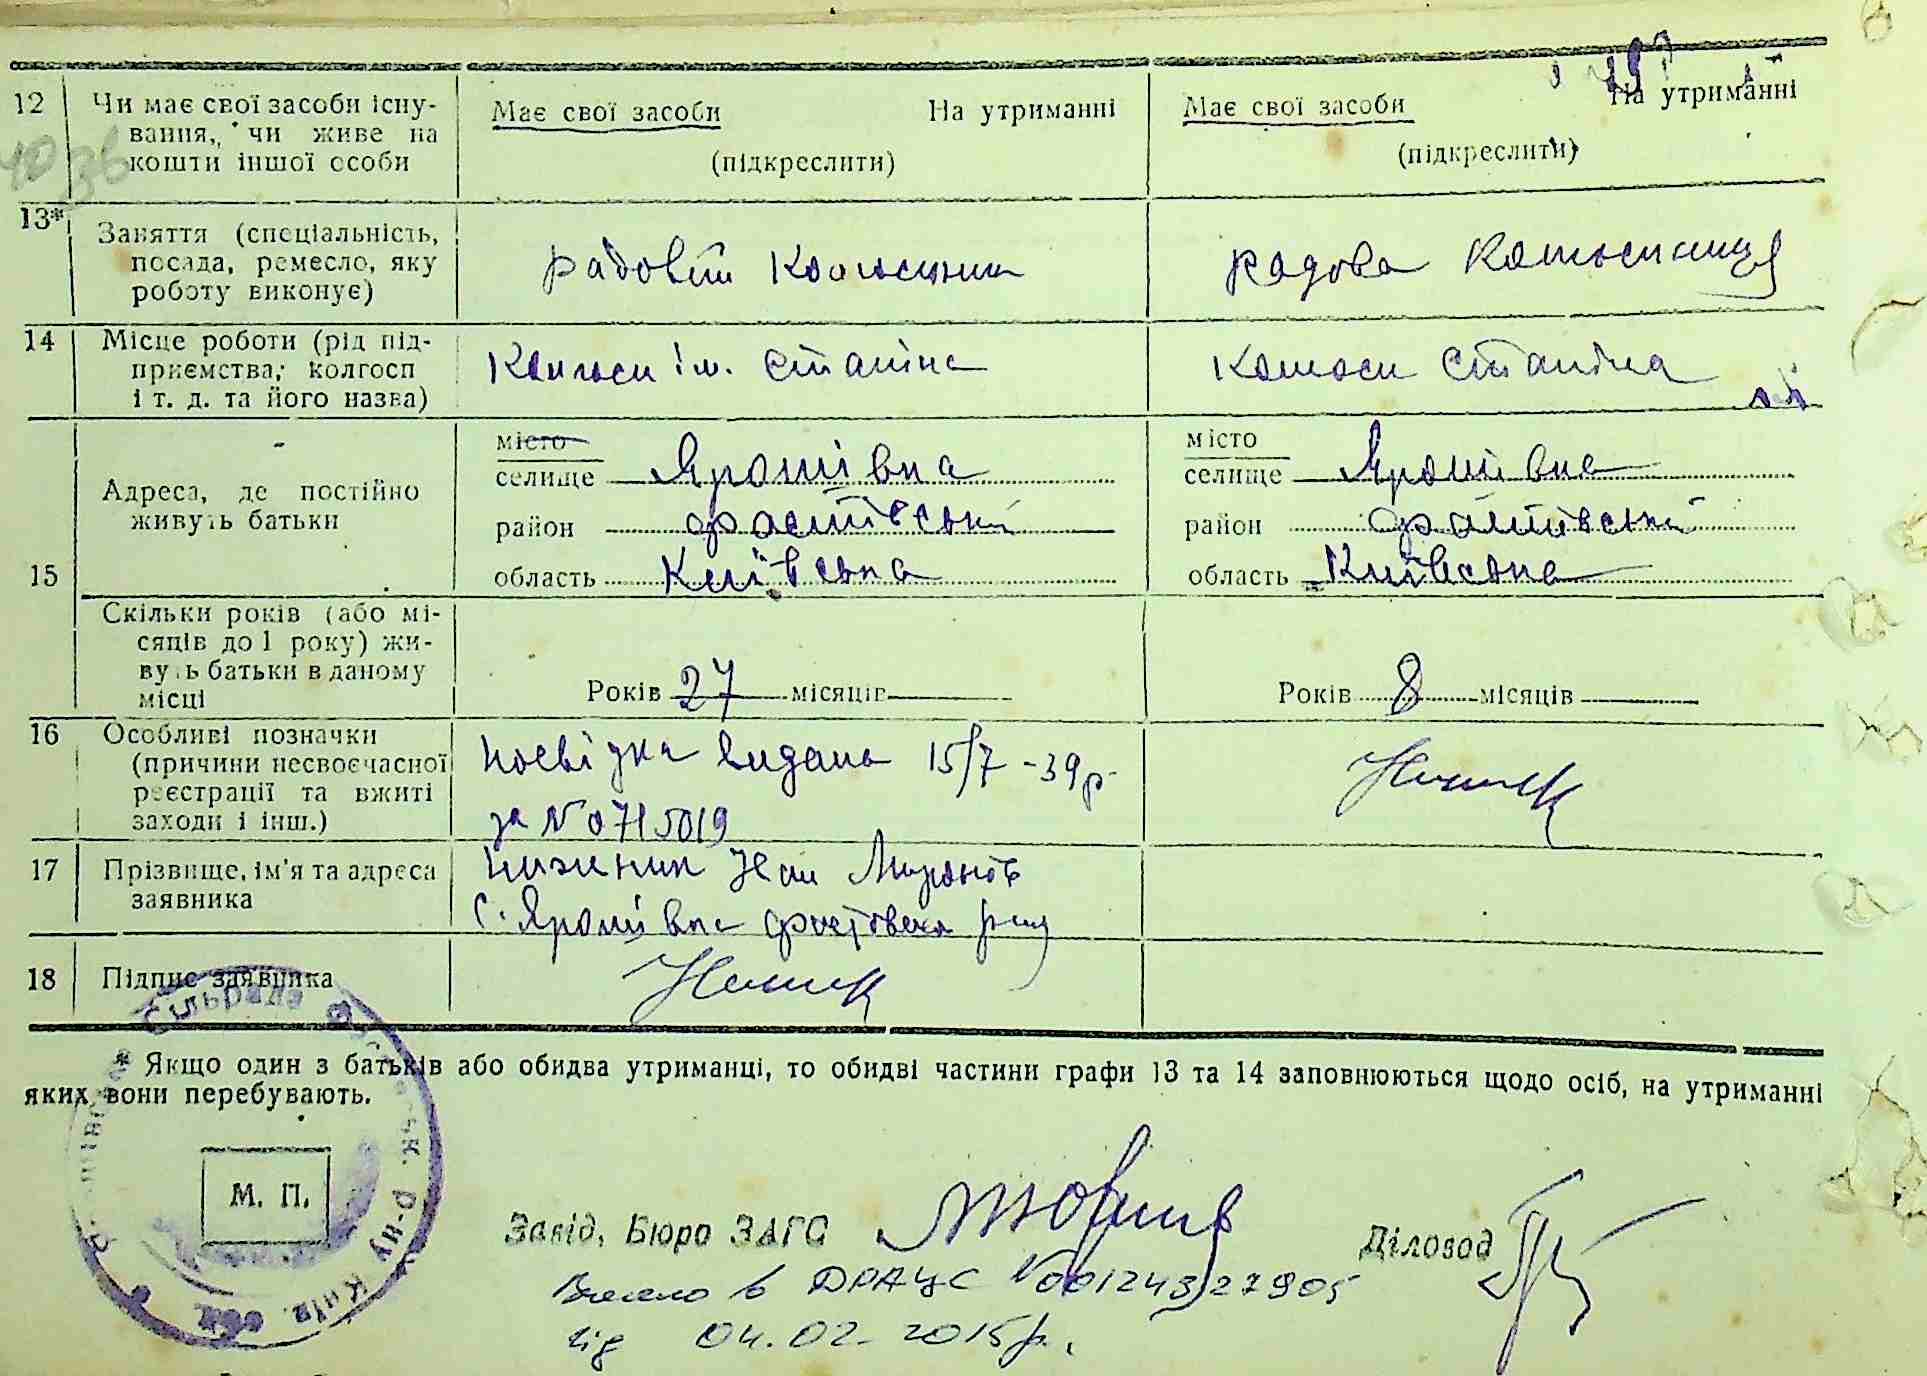 12 Чи має свої засоби існу-
вання, чи живе на
кошти іншої особи
Має свої засоби На утриманні
(підкреслити)
Має свої засоби На утриманні
(підкреслити)
13* Заняття (спеціальність,
посада, ремесло, яку
роботу виконує)
рядовий колгоспник
рядова колгоспниця
14 Місце роботи (рід під-
приємства, колгосп
і т. д. та його назва)
Колгосп ім. Сталіна
Колгосп Сталіна
15 Адреса, де постійно
живуть батьки
місто
селище Ярошівка
район Фастівський
область Київська
місто
селище Ярошівка
район Фастівський
область Київська
Скільки років (або мі-
сяців до 1 року) жи-
вуть батьки в даному
місці
Років 27 місяців
Років 8 місяців
16 Особливі позначки
(причини несвоєчасної
реєстрації та вжиті
заходи і інш.)
посвідка видана 15/7-39р
за № 0715019
17 Прізвище, ім'я та адреса
заявника
с. Ярошівка
18 Підпис заявника
* Якщо один з батьків або обидва утриманці, то обидві частини графи 13 та 14 заповнюються щодо осіб, на утриманні
яких вони перебувають.
сільрада
Київ. обл.
М. П.
Завід. Бюро ЗАГС
Діловод
Внесено в ДРАЦС №00124327905
від 04.02.2015р.